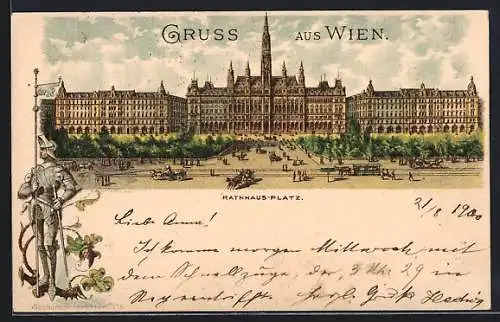 GRUSS AUS WIEN.
RATHHAUS-PLATZ.
21/8 1900
Liebe Anna!
Ich komme morgen Mittwoch mit
dem Schnellzuge, der 3 Uhr 29 in
herzl. Hedwig